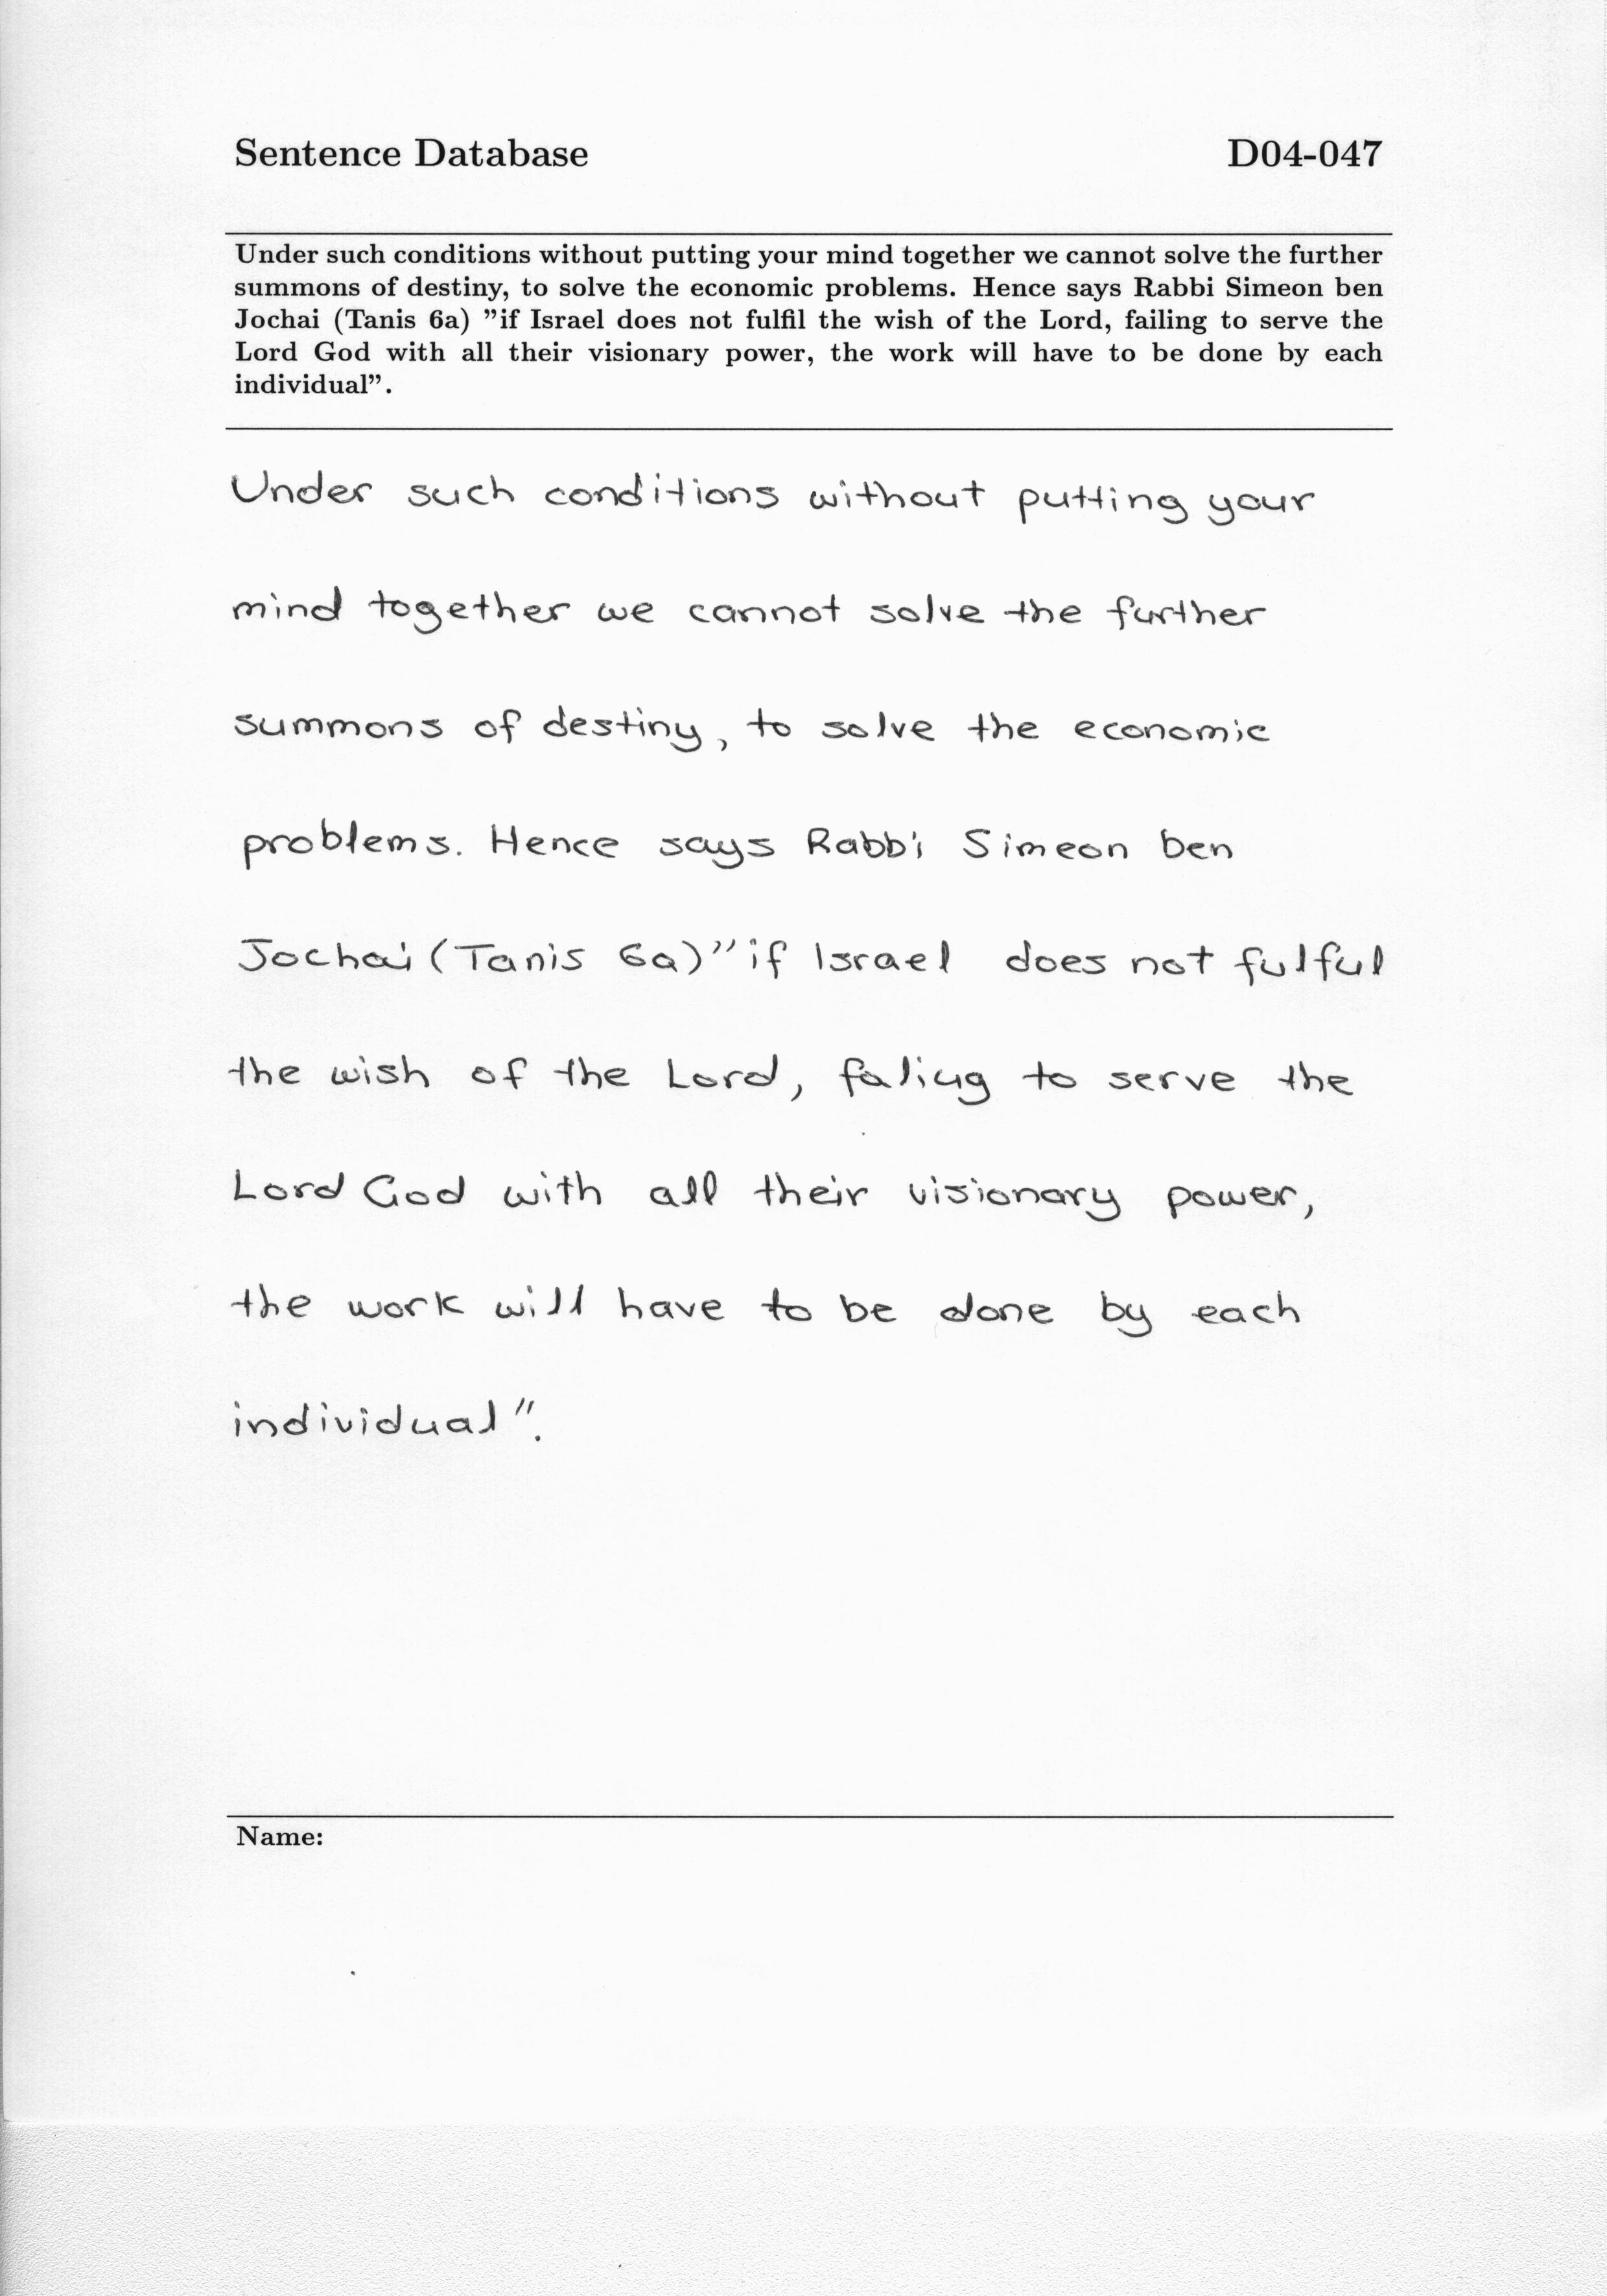 Sentence Database D04-047
Under such conditions without putting your mind together we cannot solve the further
summons of destiny, to solve the economic problems. Hence says Rabbi Simeon ben
Jochai (Tanis 6a) ”if Israel does not fulfil the wish of the Lord, failing to serve the
Lord God with all their visionary power, the work will have to be done by each
individual”.
Under such conditions without putting your
mind together we cannot solve the further
summons of destiny, to solve the economic
problems. Hence says Rabbi Simeon ben
Jochai (Tanis 6a) ”if Israel does not fulful
the wish of the Lord, faling to serve the
Lord God with all their visionary power,
the work will have to be done by each
individual”.
Name: